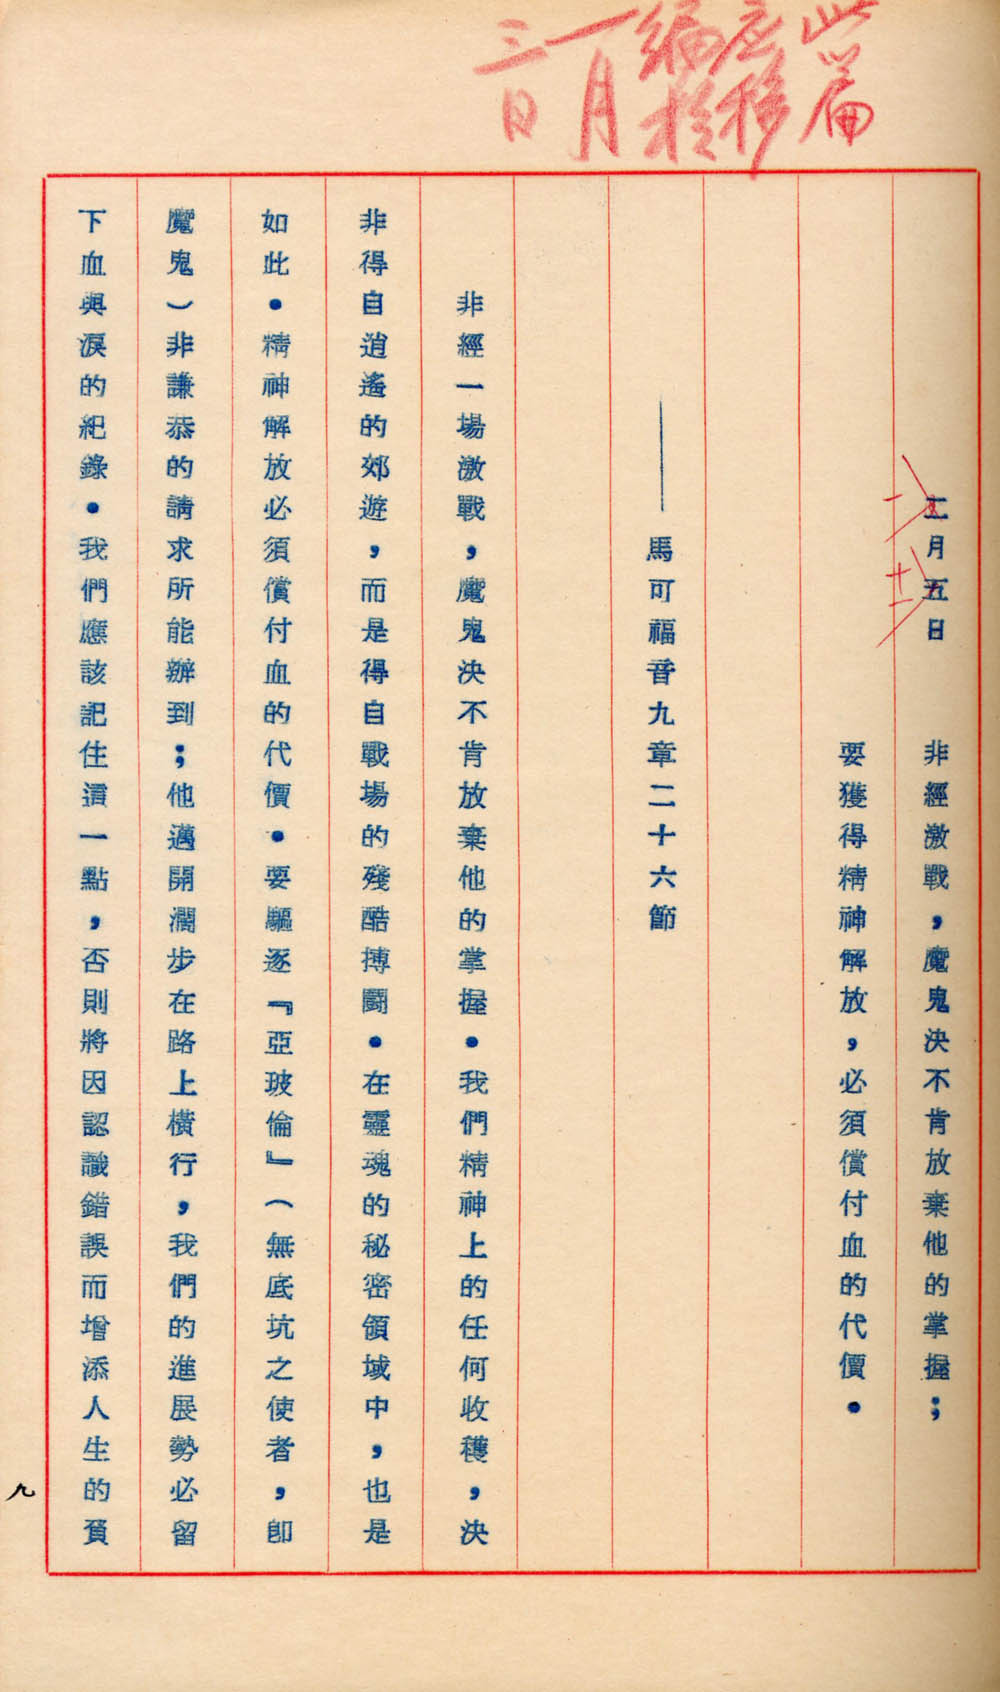 此篇
应移
編於
一月
三日
二月五日　非經激戰，魔鬼決不肯放棄他的掌握；
要獲得精神解放，必須償付血的代價。
——馬可福音九章二十六節
非經一場激戰，魔鬼決不肯放棄他的掌握。我們精神上的任何收穫，決
非得自逍遙的郊遊，而是得自戰場的殘酷搏鬪。在靈魂的秘密領域中，也是
如此。精神解放必須償付血的代價。要驅逐『亞玻倫』（無底坑之使者，卽
魔鬼）非謙恭的請求所能辦到；他邁開濶步在路上橫行，我們的進展勢必留
下血與淚的紀錄。我們應該記住這一點，否則將因認識錯誤而增添人生的負
九